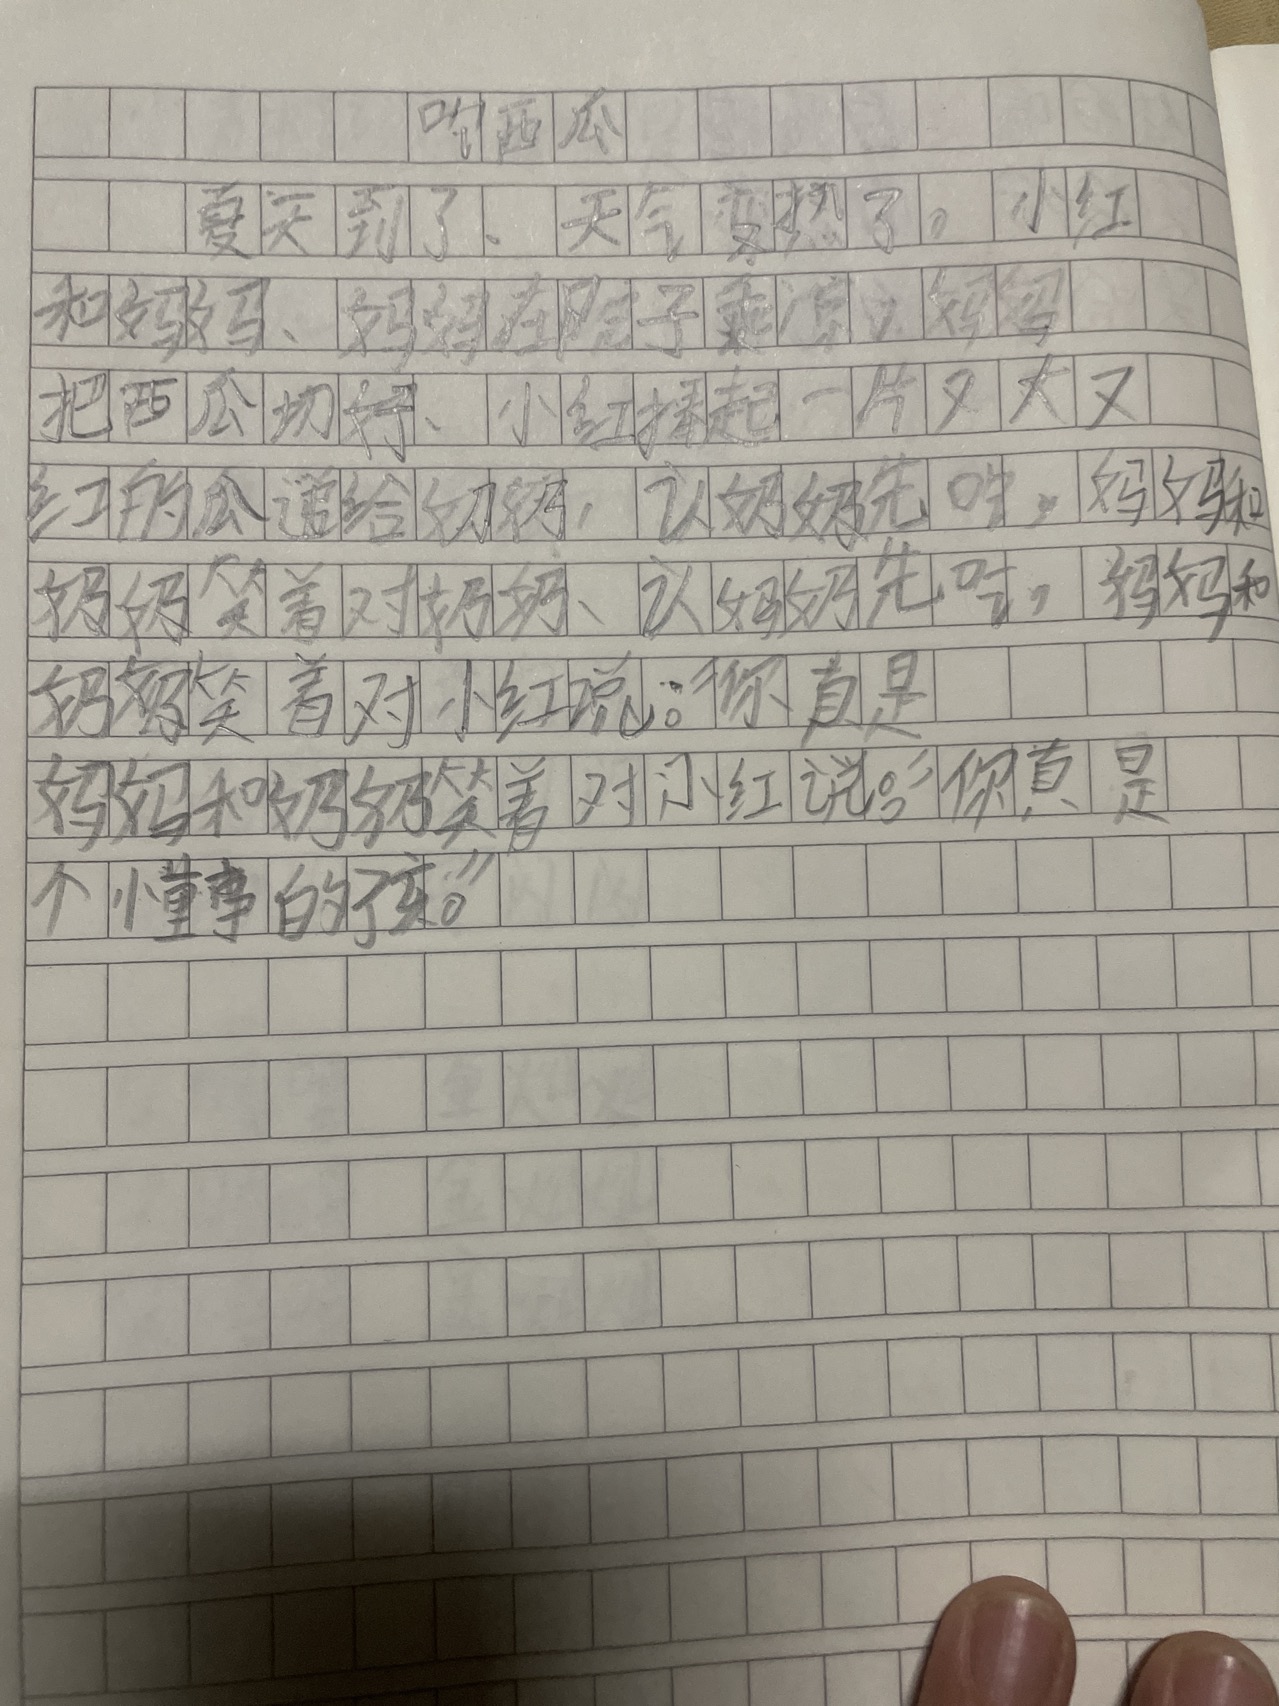 吃西瓜
夏天到了、天气变热了。小红
和妈妈、妈妈在院子乘凉,妈妈
把西瓜切好、小红捧起一片又大又
红的瓜递给奶奶,认奶奶先吃,妈妈和
奶奶笑着对奶奶、认妈奶先吃,妈妈和
奶奶笑着对小红说:“你真是
妈妈和奶奶笑着对小红说:“你真是
个懂事的孩。”